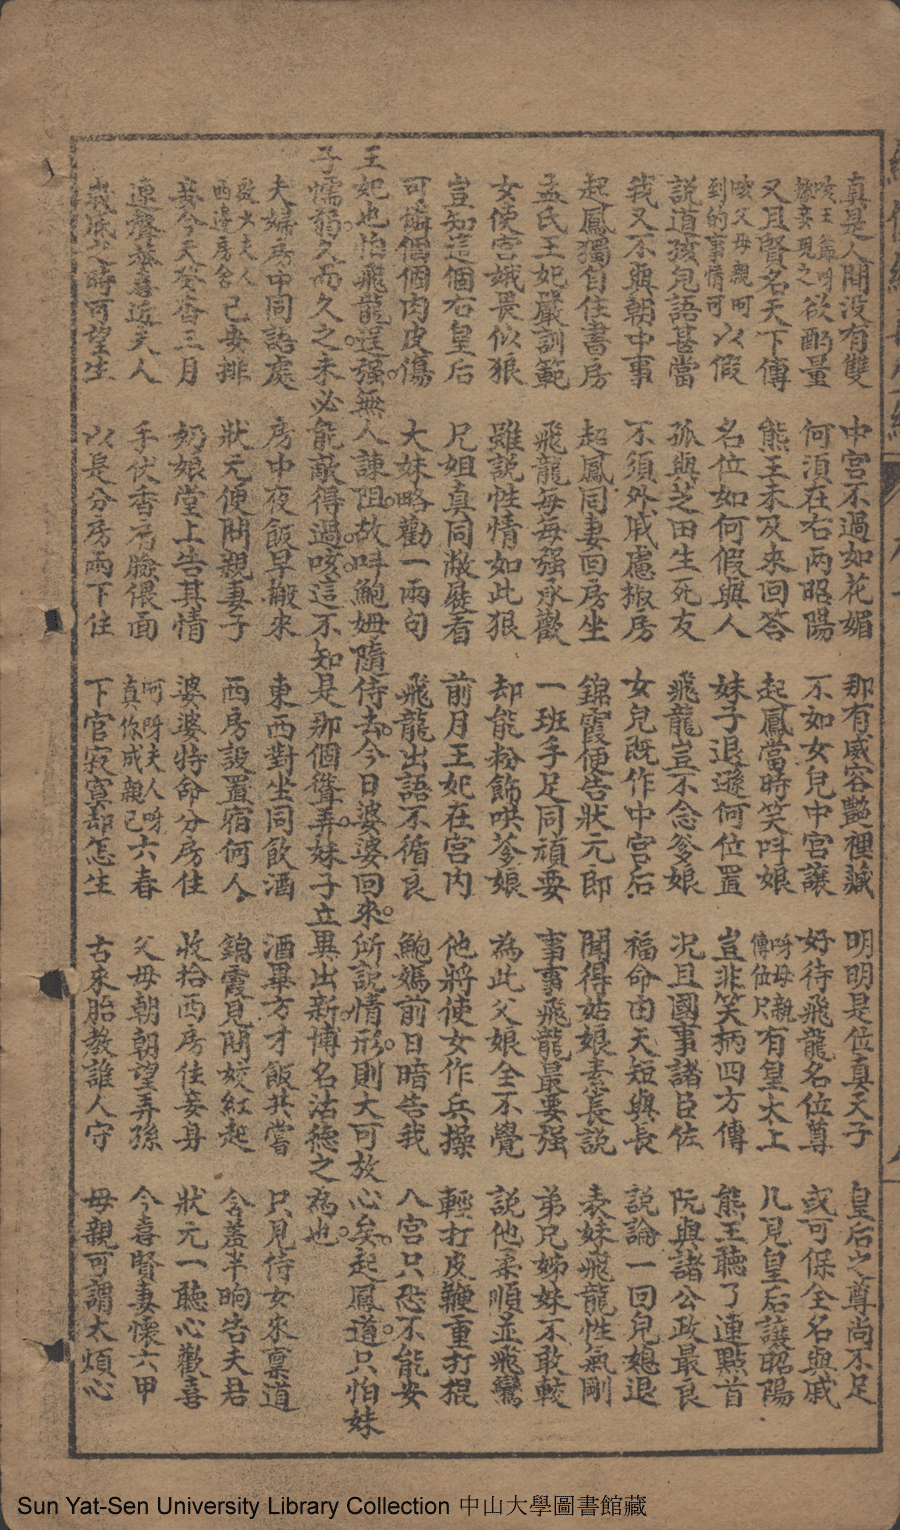 真是人間没有雙 中宮不過如花媚 那有威容艷裡藏 明明是位真天子 皇后之尊尚不足
咳王爺呀 欲酌量 何須在右两昭陽 不如女兒中宮讓 好待飛龍名位尊 或可保全名與戚
又且賢名天下傳 熊王未及來回答 起鳳當時笑呌娘 呀母親傳位只有皇太上 几見皇后讓昭陽
咳父母親呵到的事情可以假 名位如何假與人 妹子退遜何位置 豈非笑柄四方傳 熊王聽了連點首
説道孩兒語甚當 孤與芝田生死友 飛龍豈不念爹娘 况且國事諸臣佐 阮與諸公政最良
我又不與朝中事 不須外戚慮椒房 女兒既作中宮后 福命由天短與長 説論一回兒媳退
起鳳獨自住書房 起鳳同妻回房坐 錦霞便告狀元郎 聞得姑娘素㐮説 表妹飛龍性氣剛
孟氏王妃嚴訓範 飛龍每每强承歡 一班手足同頑耍 事事飛龍最要强 弟兄姊妹不敢較
女使宮娥畏似狼 雖説性情如此狠 却能粉飾哄爹娘 為此父娘全不覺 説他柔順並飛鸞
豈知這個右皇后 兄姐真同敝屣看 前月王妃在宮内 他將使女作兵操 輕打皮鞭重打棍
可憐個個肉皮傷 大妹略勸一兩句 飛龍出語不循良 鮑媽前日暗告我 入宮只恐不能安
王妃也怕飛龍逞强。無人諫阻。故呌鮑姆隨侍去。今日婆婆回來。所説情形。則大可放心矣。起鳳道。只怕妹
子懦弱。久而久之。未必能敵得過。咳。這不知是那個聳弄。妹子立異出新。博名沽德之為也。
夫婦房中同語處 房中夜飯早搬來 東西對坐同飲酒 酒畢方才飯共嘗 只見侍女來禀道
啟大夫人西邊房舍已安排 狀元便問親妻子 西房設置宿何人 錦霞見問姣紅起 含羞半晌告夫君
妾今天癸杳三月 奶娘堂上告其情 婆婆特命分房住 收拾西房住妾身 狀元一聽心歡喜
連聲恭喜近夫人 手伏香肩臉偎面 呵呀夫人呀真你成親已六春 父母朝朝望弄孫 今喜賢妻懷六甲
幾時可望生 以是分房兩下住 下官寂寞却怎生 古來胎教誰人守 母親可謂太煩心
Sun Yat-Sen University Library Collection 中山大學圖書館藏